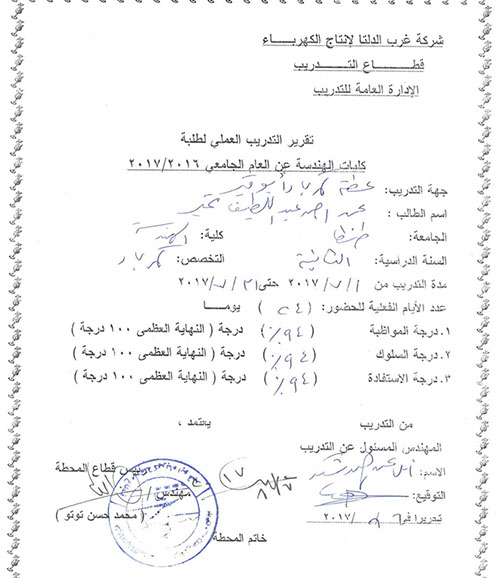 شركة غرب الدلتا لإنتاج الكهربـــاء
قطـــاع التـــدريب
الإدارة العامة للتدريب
تقرير التدريب العملي لطلبة
كليات الهندسة عن العام الجامعي ٢٠١٧/٢٠١٦
جهة التدريب: محطة كهرباء أبو قير
اسم الطالب: عبد اللطيف
الجامعة: طنطا كلية: الهندسة
السنة الدراسية: الثانية التخصص: كهرباء
مدة التدريب من ١ / ٧ / ٢٠١٧ حتى ٣١ / ٧ / ٢٠١٧
عدد الأيام الفعلية للحضور: ( ٢٤ ) يومـــا
١. درجة المواظبة ( ٩٤٪ ) درجة ( النهاية العظمى ١٠٠ درجة )
٢. درجة السلوك ( ٩٤٪ ) درجة ( النهاية العظمى ١٠٠ درجة )
٣. درجة الاستفادة ( ٩٤٪ ) درجة ( النهاية العظمى ١٠٠ درجة )
من التدريب يعتمد ،
المهندس المسئول عن التدريب
رئيس قطاع المحطة
الاسم:
مهندس /
التوقيع:
( محمد حسن توتو )
تحريرا في / / ٢٠١٧
خاتم المحطة